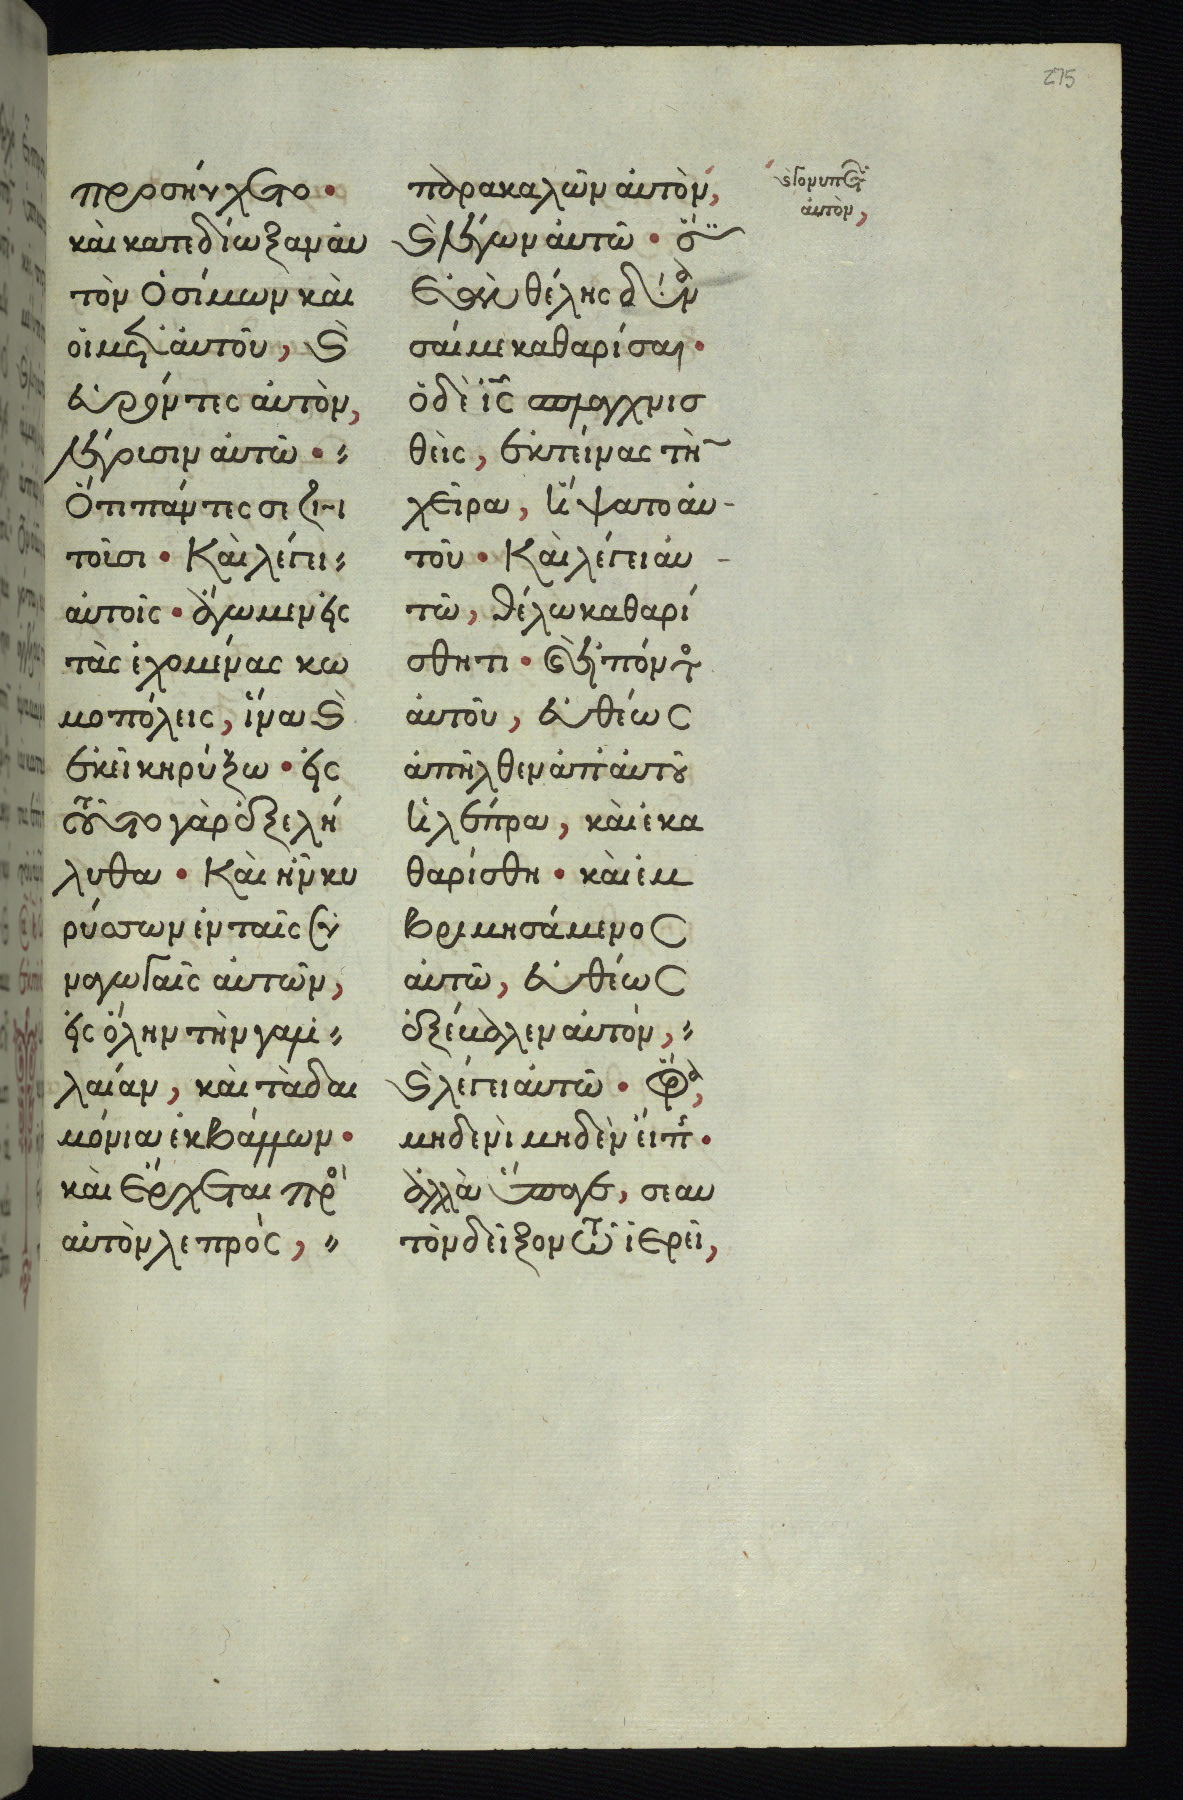 275
προσηύχετο·
καὶ κατεδίωξαν αὐ
τὸν ὁ σίμων καὶ
οἱ μετ' αὐτοῦ, καὶ
εὑρόντες αὐτὸν,
λέγουσιν αὐτῶ·
Ὅτι πάντες σε ζη
τοῦσι· Καὶ λέγει
αὐτοῖς· ἄγωμεν εἰς
τὰς ἐχομένας κω
μοπόλεις, ἵνα καὶ
ἐκεῖ κηρύξω· εἰς
τοῦτο γὰρ ἐξελή
λυθα· Καὶ ἦν κη
ρύσσων ἐν ταῖς συ
ναγωγαῖς αὐτῶν,
εἰς ὅλην τὴν γαλι
λαίαν, καὶ τὰ δαι
μόνια ἐκβάλλων·
καὶ ἔρχεται πρὸς
αὐτὸν λεπρὸς,
παρακαλῶν αὐτὸν,
καὶ λέγων αὐτῶ· ὅτι
Ἐὰν θέλης δύνα
σαί με καθαρίσαι·
ὁ δὲ ις σπλαγχνισ
θεὶς, ἐκτείνας τὴν
χεῖρα, ἥψατο αὐ-
τοῦ· Καὶ λέγει αὐ-
τῶ, θέλω καθαρί
σθητι· καὶ εἰπόντος
αὐτοῦ, εὐθέως
ἀπῆλθεν ἀπ' αὐτοῦ
ἡ λέπρα, καὶ ἐκα
θαρίσθη· καὶ ἐμ
βριμησάμενος
αὐτῶ, εὐθέως
ἐξέβαλεν αὐτὸν,
καὶ λέγει αὐτῶ· ὅρα,
μηδενὶ μηδὲν εἴπης·
ἀλλὰ ὕπαγε, σεαυ
τὸν δεῖξον τῶ ἱερεῖ,
καὶ γονυπετῶν
αὐτὸν,